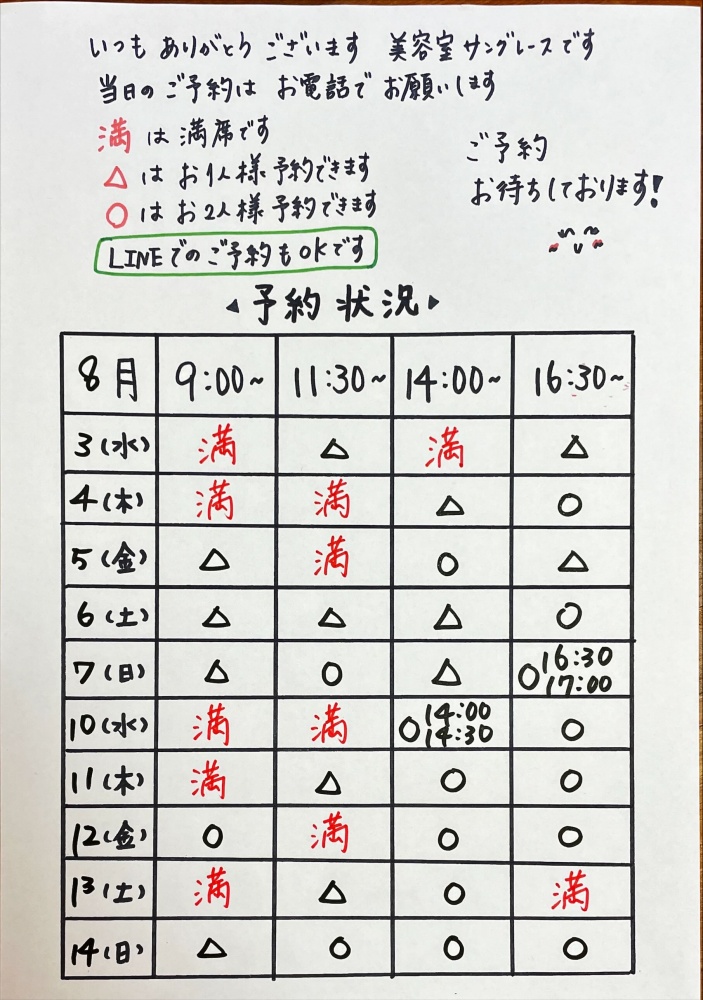 いつも ありがとうございます 美容室サングレースです
当日のご予約は お電話で お願いします
満 は 満席です
△ は お1人様 予約できます
○ は お2人様 予約できます
LINEでのご予約もOKです
ご予約
お待ちしております!
◀予約状況▶
8月 9:00~ 11:30~ 14:00~ 16:30~
3(水) 満 △ 満 △
4(木) 満 満 △ ○
5(金) △ 満 ○ △
6(土) △ △ △ ○
7(日) △ ○ △ ○16:30 17:00
10(水) 満 満 ○14:00 14:30 ○
11(木) 満 △ ○ ○
12(金) ○ 満 ○ ○
13(土) 満 △ ○ 満
14(日) △ ○ ○ ○